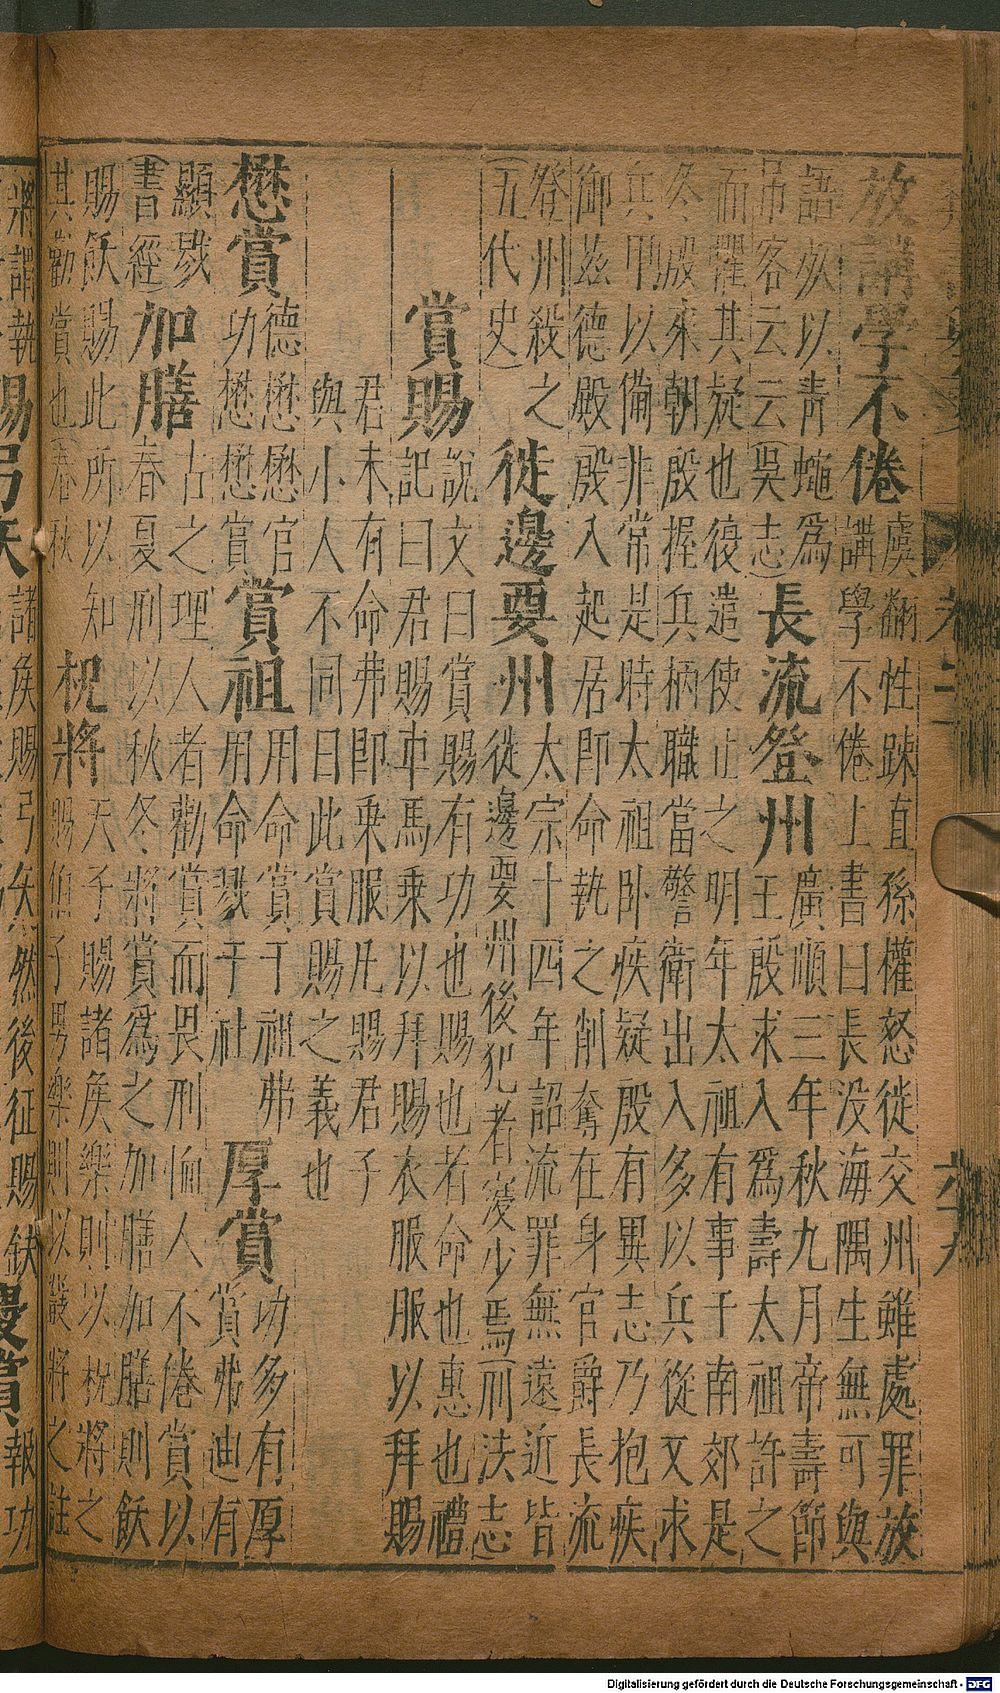 放講學不倦
虞翻性踈直孫權怒徙交州雖處罪放
講學不倦上書曰長没海隅生無可與
語死以青蠅爲
吊客云云(吳志)
長流登州
廣順三年秋九月帝壽節
王殷求入爲壽太祖許之
而懼其疑也復遣使止之明年太祖有事于南郊是
冬殷來朝殷握兵柄職當警衛出入多以兵從又求
兵甲以備非常是時太祖卧疾疑殷有異志乃抱疾
御兹德殿殷入起居即命執之削奪在身官爵長流
登州殺之
(五代史)
徙邊要州
太宗十四年詔流罪無遠近皆
徙邊要州後犯者寖少焉(刑法志)
賞賜
說文曰賞賜有功也賜也者命也惠也禮
記曰君賜車馬乘以拜賜衣服服以拜賜
君未有命弗即乘服凡賜君子
與小人不同日此賞賜之義也
懋賞
德懋懋官
功懋懋賞
賞祖
用命賞于祖弗
用命戮于社
厚賞
功多有厚
賞弗迪有
顯戮
(書經)
加膳
古之理人者勸賞而畏刑恤人不倦賞以
春夏刑以秋冬將賞爲之加膳加膳則飫
賜飫賜此所以知
其勸賞也(春秋)
柷將
天子賜諸侯樂則以柷將之
賜伯子男樂則以鼗將之註
將謂執
賜弓矢
諸侯賜弓矢然後征賜鈇
賞
報功
Digitalisierung gefördert durch die Deutsche Forschungsgemeinschaft - DFG